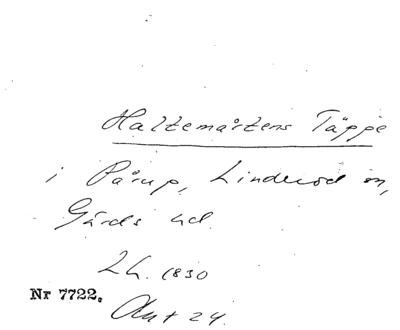 Haltemårtens Täppe
i Pårup, Linderöd sn,
Gärds hd.
Lh. 1830
Nr 7722.
Akt 24.